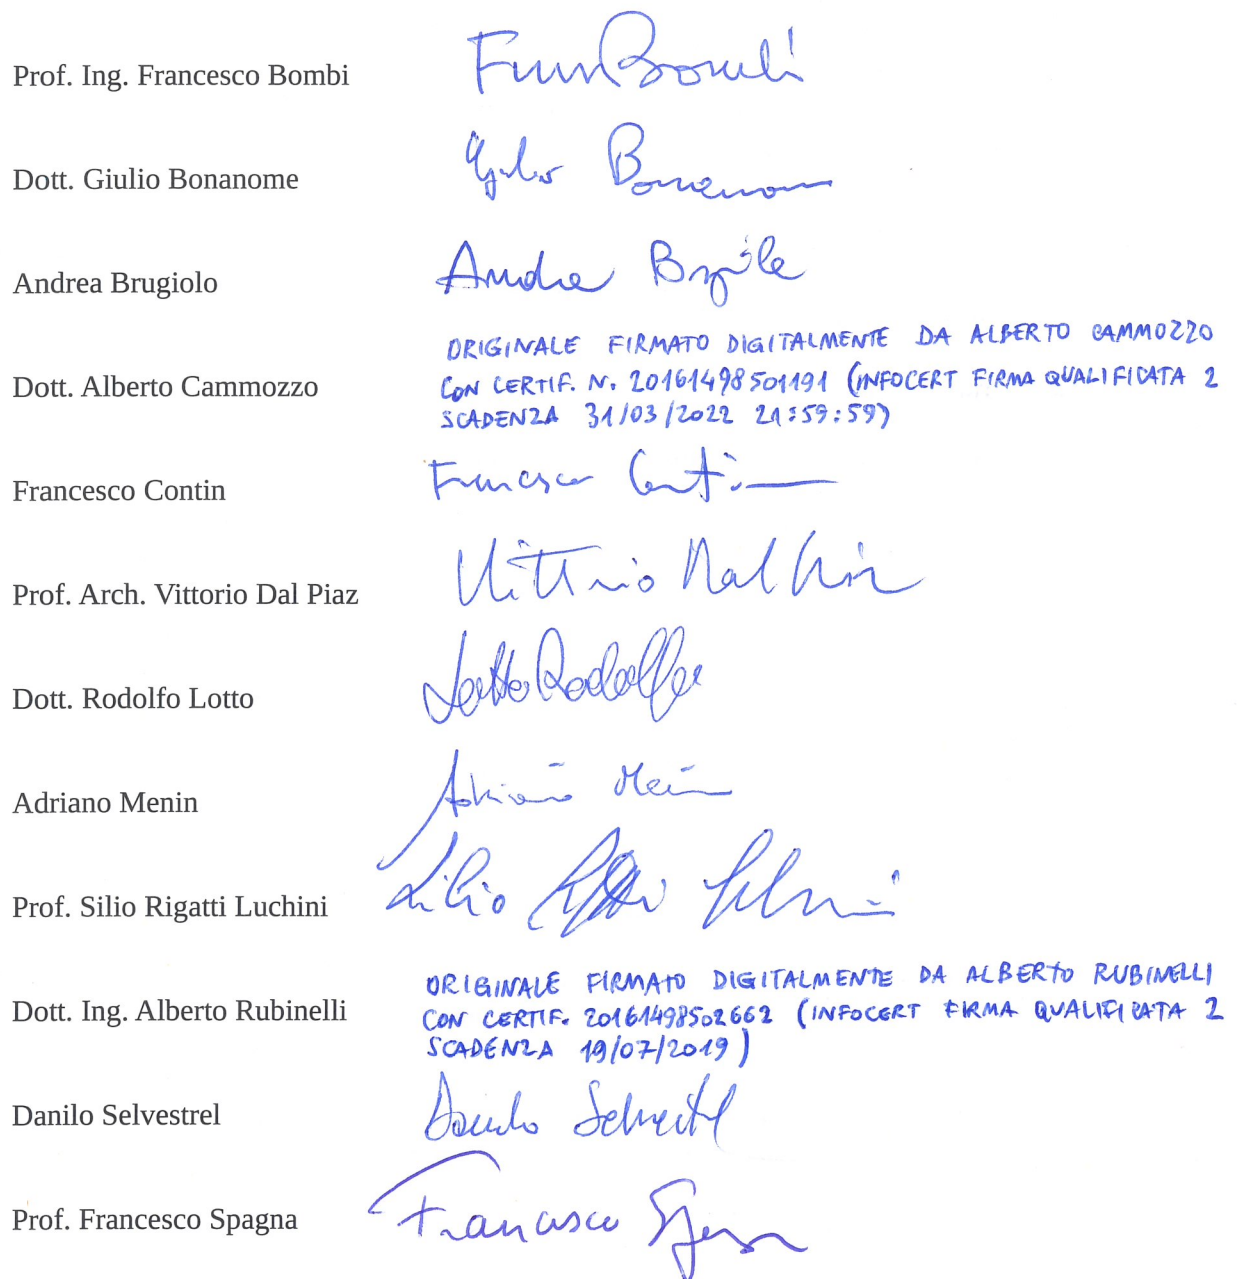 Prof. Ing. Francesco Bombi
Dott. Giulio Bonanome
Giulio Bonanome
Andrea Brugiolo
Andrea
ORIGINALE FIRMATO DIGITALMENTE DA ALBERTO CAMMOZZO
Dott. Alberto Cammozzo
CON CERTIF. N. 20161498501191 (INFOCERT FIRMA QUALIFICATA 2
SCADENZA 31/03/2022 21:59:59)
Francesco Contin
Francesco Contin
Prof. Arch. Vittorio Dal Piaz
Vittorio Dal Piaz
Dott. Rodolfo Lotto
Lotto Rodolfo
Adriano Menin
Adriano Menin
Prof. Silio Rigatti Luchini
Silio
ORIGINALE FIRMATO DIGITALMENTE DA ALBERTO RUBINELLI
Dott. Ing. Alberto Rubinelli
CON CERTIF. 20161498502662 (INFOCERT FIRMA QUALIFICATA 2
SCADENZA 19/07/2019)
Danilo Selvestrel
Danilo Selvestrel
Prof. Francesco Spagna
Francesco Spagna